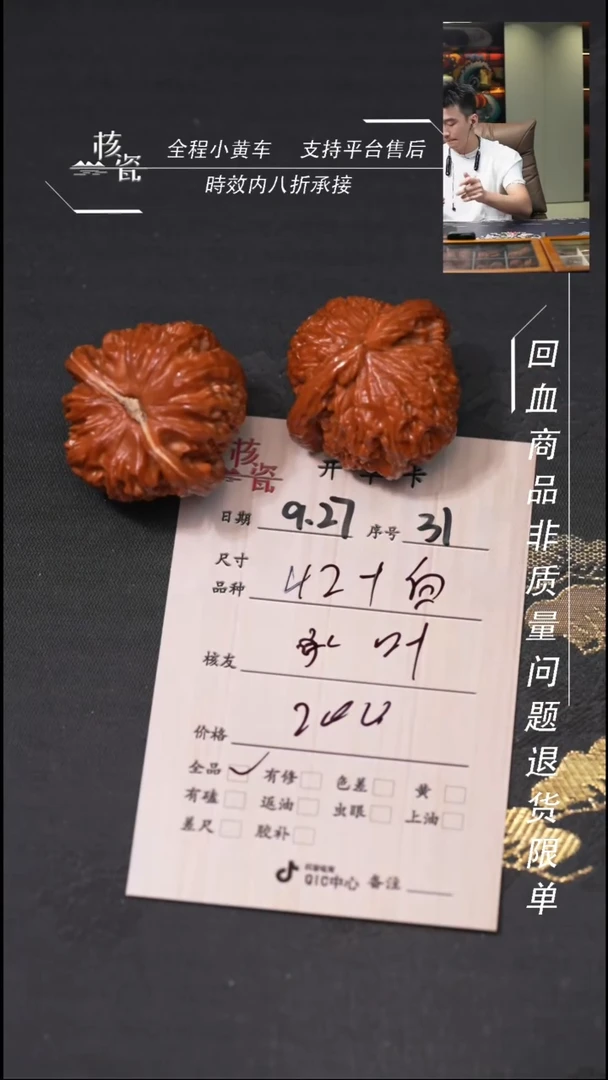 核瓷
全程小黄车 支持平台售后
時效内八折承接
回血商品非质量问题退货限单
核瓷
开 卡
日期 9.27 序号 31
尺寸
品种 42+白
核友
价格
全品 有修 色差 黄
有磕 返油 虫眼 上油
差尺 胶补
抖音电商
QIC中心 备注